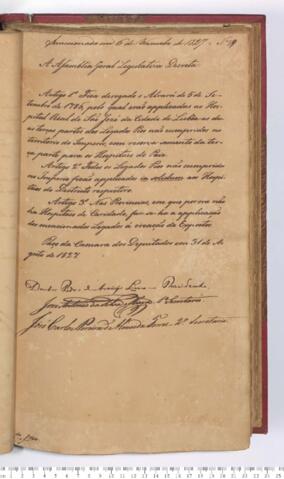 Sanccionada em 6 de Novembro de 1827. Nº 9
A Assemblea Geral Legislativa Decreta
Artigo 1º Fica derogado o Alvará de 5 de Se-
tembro de 1786, pelo qual erão applicadas ao Hos-
pital Real de São José da Cidade de Lisboa as du-
as terças partes dos Legados Pios não cumpridos no
territorio do Imperio, com reserva somente da ter-
ça parte para os Hospitaes do Paiz.
Artigo 2º Todos os Legados Pios não cumpridos
no Imperio ficão applicados in solidum aos Hospi-
taes do Districto respectivo.
Artigo 3º Nas Provincias, em que por ora não
ha Hospitaes de Caridade, far-se-ha a applicação
dos mencionados Legados á creação de Expostos.
Paço da Camara dos Deputados em 31 de A-
gosto de 1827
de Araujo Lima Presidente
José 1º Secretario
José Carlos Pereira de Almeida Torres 2º Secretario